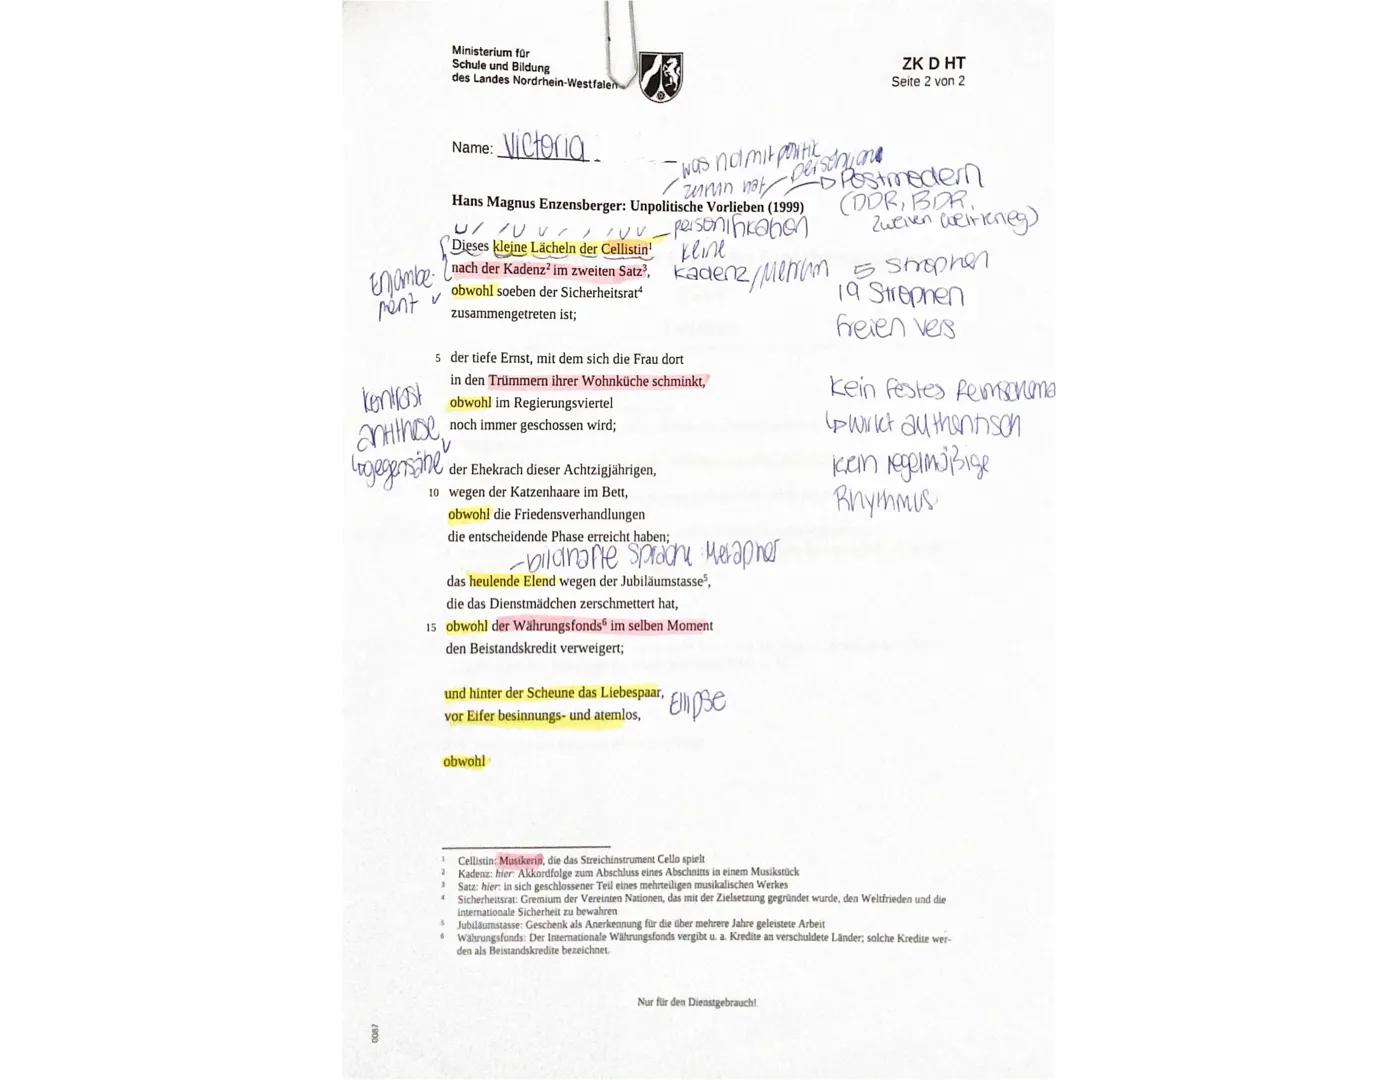 Ministerium für
Schule und Bildung
des Landes Nordrhein-Westfalen
ZK D HT
Seite 2 von 2
Name: Victoria
- was nd mit politik
zumn hat
Hans Magnus Enzensberger: Unpolitische Vorlieben (1999)
Postmodern
(DDR, BDR,
personifikation
keine
Kadenz/Metrum
Enjambe-
ment
Dieses kleine Lächeln der Cellistin¹
nach der Kadenz² im zweiten Satz³,
obwohl soeben der Sicherheitsrat⁴
zusammengetreten ist;
5 Strophen
19 Strophen
freien Vers
5 der tiefe Ernst, mit dem sich die Frau dort
in den Trümmern ihrer Wohnküche schminkt,
obwohl im Regierungsviertel
noch immer geschossen wird;
Kontrast
antithese
kein festes Reimschema
↳ wirkt authentisch
kein regelmäßige
Rhythmus
der Ehekrach dieser Achtzigjährigen,
10 wegen der Katzenhaare im Bett,
obwohl die Friedensverhandlungen
die entscheidende Phase erreicht haben;
- bildhafte Sprache Metapher
das heulende Elend wegen der Jubiläumstasse⁵,
die das Dienstmädchen zerschmettert hat,
15 obwohl der Währungsfonds⁶ im selben Moment
den Beistandskredit verweigert;
und hinter der Scheune das Liebespaar,
vor Eifer besinnungs- und atemlos,
Ellipse
obwohl
1 Cellistin: Musikerin, die das Streichinstrument Cello spielt
2 Kadenz: hier: Akkordfolge zum Abschluss eines Abschnitts in einem Musikstück
3 Satz: hier: in sich geschlossener Teil eines mehrteiligen musikalischen Werkes
4 Sicherheitsrat: Gremium der Vereinten Nationen, das mit der Zielsetzung gegründet wurde, den Weltfrieden und die
internationale Sicherheit zu bewahren
5 Jubiläumstasse: Geschenk als Anerkennung für die über mehrere Jahre geleistete Arbeit
6 Währungsfonds: Der Internationale Währungsfonds vergibt u. a. Kredite an verschuldete Länder; solche Kredite wer-
den als Beistandskredite bezeichnet.
Nur für den Dienstgebrauch!
0087